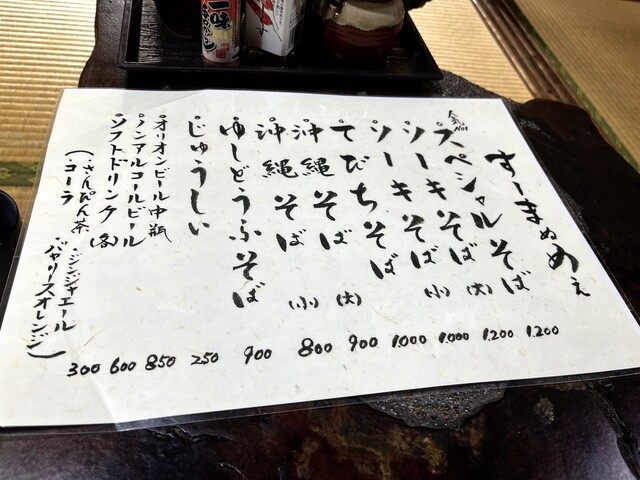 すーまぬめぇ
人気No1
スペシャルそば 1.200
ソーキそば (大) 1.200
ソーキそば (小) 1.000
てびちそば 1.000
沖縄そば (大) 900
沖縄そば (小) 800
ゆしどうふそば 900
じゅうしい 250
オリオンビール中瓶 850
ノンアルコールビール 600
ソフトドリンク(各) 300
(・さんぴん茶 ・ジンジャエール
・コーラ ・バヤリースオレンジ)
一味